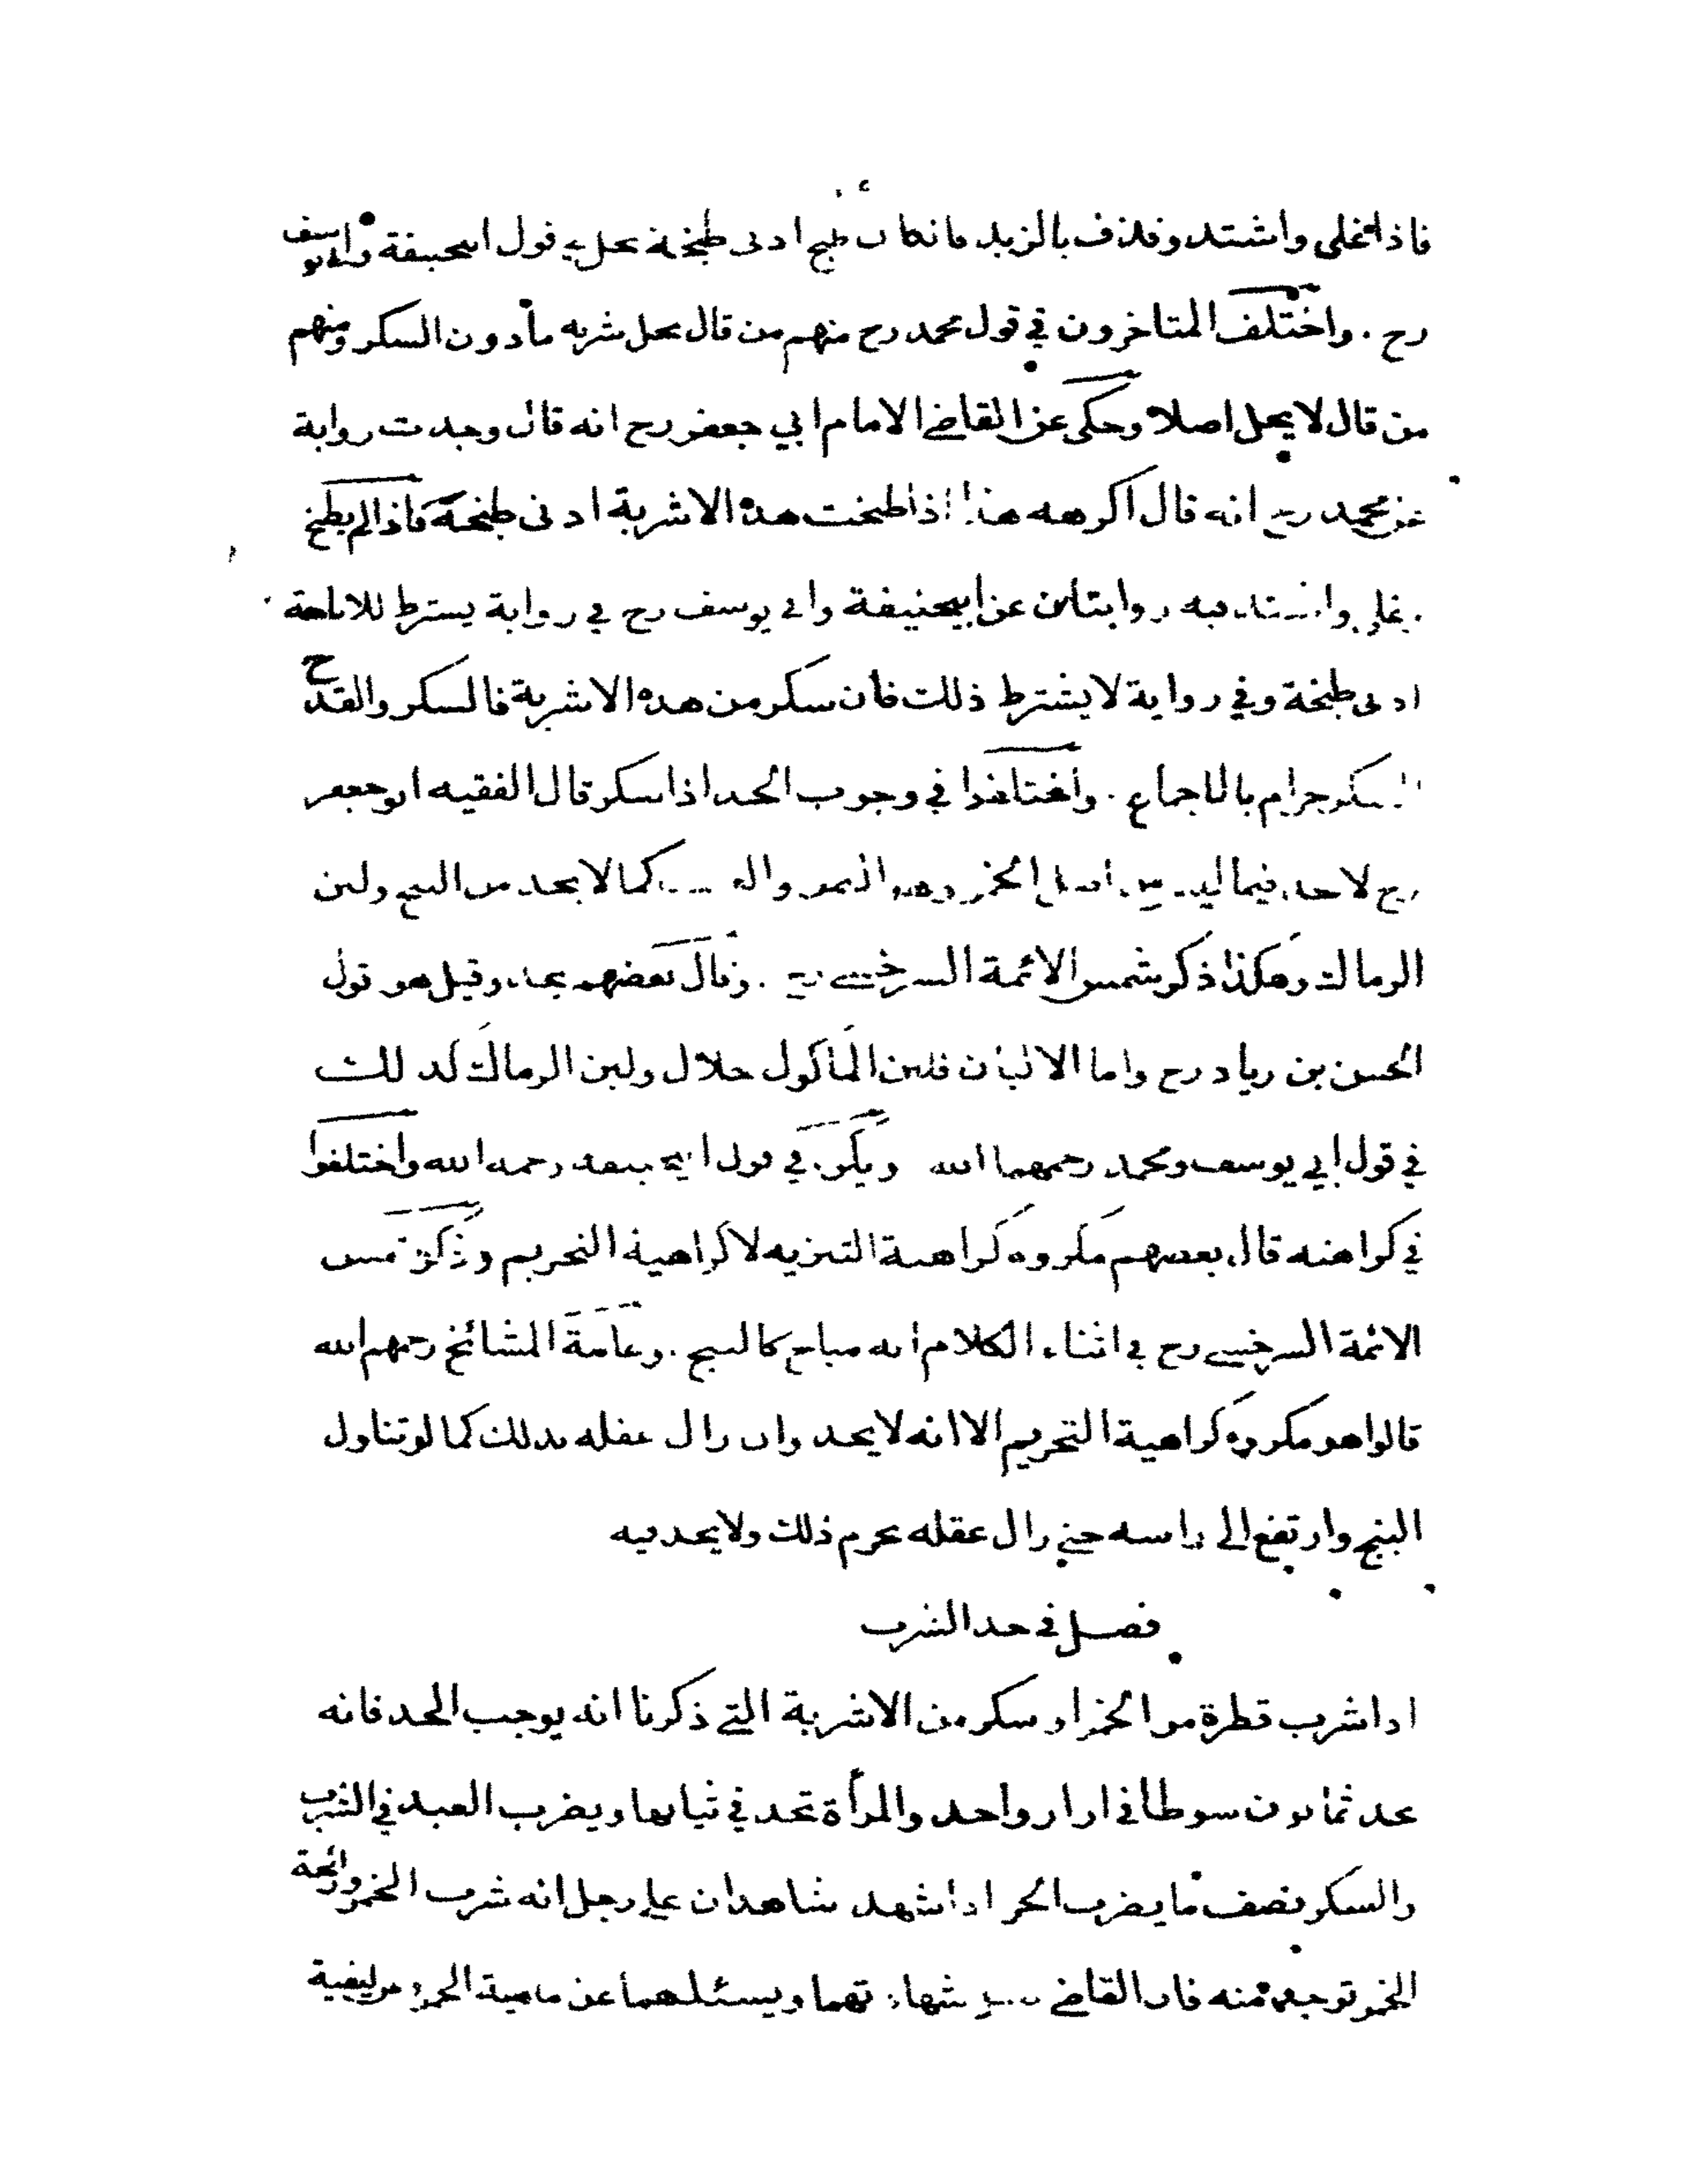 فاذا غلى واشتد وقذف بالزبد فانكان طبخ ادنى طبخة يحل في قول ابيحنيفة وابي يوسف
رح . واختلف المتاخرون في قول محمد رح منهم من قال يحل شربه مادون السكر ومنهم
من قال لا يحل اصلا وحكى عن القاضي الامام ابي جعفر رح انه قال وجدت رواية
عن محمد رح انه قال اكره هذا اذا طبخت هذه الاشربة ادنى طبخة فاذا لم يطبخ
وغلى واشتد فيه روايتان عن ابيحنيفة وابي يوسف رح في رواية يشترط للاباحة
ادنى طبخة وفي رواية لا يشترط ذلك فان سكر من هذه الاشربة فالسكر والقدح
المسكر حرام بالاجماع . واختلفوا في وجوب الحد اذا سكر قال الفقيه ابو جعفر
رح لا حد فيما ليس من اصل الخمر وهو التمر والعنب كما لا يحد من البنج ولبن
الرماك وهكذا ذكر شمس الائمة السرخسي رح . وقال بعضهم يحد وقيل هو قول
الحسن بن زياد رح واما الالبان فلبن الماكول حلال ولبن الرماك كذلك
في قول ابي يوسف ومحمد رحمهما الله ويكره في قول ابيحنيفة رحمه الله واختلفوا
في كراهته قال بعضهم مكروه كراهية التنزيه لا كراهية التحريم وذكر شمس
الائمة السرخسي رح في اثناء الكلام انه مباح كالبنج . وعامة المشائخ رحمهم الله
قالوا هو مكروه كراهية التحريم الا انه لا يحد وان زال عقله بذلك كما لو تناول
البنج وارتفع الى راسه حتى زال عقله يحرم ذلك ولا يحد فيه
فصل في حد الشرب
اذا شرب قطرة من الخمر او سكر من الاشربة التي ذكرنا انه يوجب الحد فانه
يحد ثمانون سوطا في ازار واحد والمرأة تحد في ثيابها ويضرب العبد في الشرب
والسكر نصف ما يضرب الحر اذا شهد شاهدان على رجل انه شرب الخمر ورائحة
الخمر توجد منه فان القاضي شهادتهما ويسئلهما عن ماهية الخمر